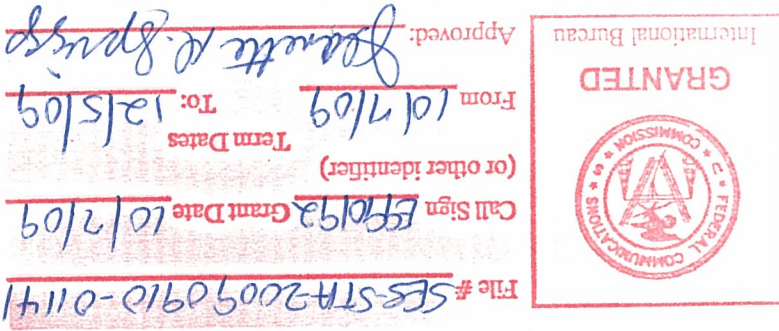 File # SES-STA-20090910-01141
Call Sign E990192 Grant Date 10/7/09
(or other identifier)
Term Dates
From 10/7/09 To: 12/5/09
Approved: Jeanette M. Spriggs
* FEDERAL COMMUNICATIONS COMMISSION * U S
GRANTED
International Bureau